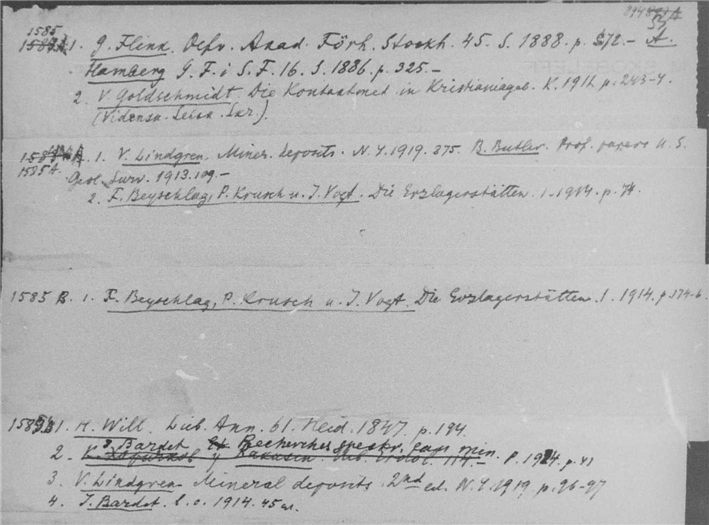 1585
1. G. Flink. Oefv. Akad. Förh. Stockh. 45. S. 1888. p. 572.-
Hamberg G. F. i S. F. 16. S. 1886. p. 325.-
2. V. Goldschmidt Die Kontaktmet. in Kristianiageb. K. 1911. p. 243-4.
(Vidensk. Selsk. Skr.).
1. V. Lindgren. Miner. deposits. N. Y. 1919. 375. B. Butler. Prof. papers U. S.
1585 A. Geol. Surv. 1913. 109.-
2. F. Beyschlag, P. Krusch u. J. Vogt. Die Erzlagerstätten. 1. 1914. p. 74.
1585 B. 1. F. Beyschlag, P. Krusch u. J. Vogt. Die Erzlagerstätten. 1. 1914. p. 374-6.
1. H. Will. Lieb. Ann. 61. Heid. 1847. p. 194
2. J. Bardet Recherches spectr. eaux min. P. 1914. p. 41
3. V. Lindgren Mineral deposits. 2nd ed. N. Y. 1919 p. 96-97
4. J. Bardet. l. c. 1914. 45